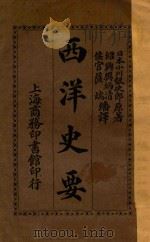 日本小川銀次郎原著
紹興樊炳清
侯官薩端繙譯
西洋史要
上海商務印書館印行